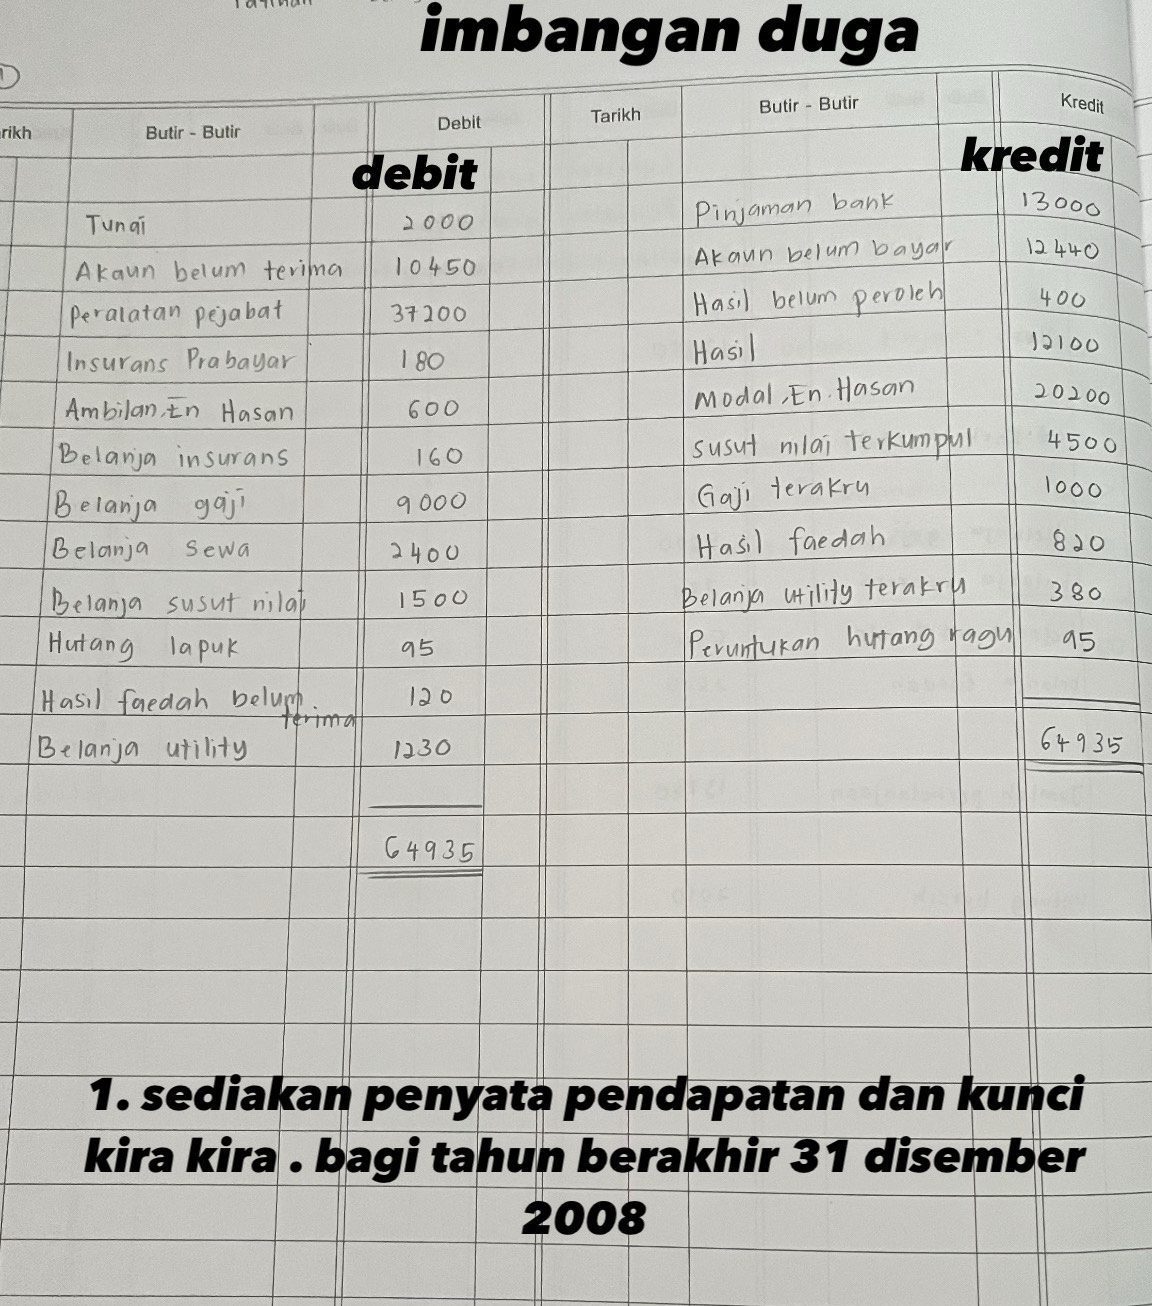 imbangan duga
1
rikh Butir - Butir Debit Tarikh Butir - Butir Kredit
debit kredit
Tunai 2000 Pinjaman bank 13000
Akaun belum terima 10450 Akaun belum bayar 12440
Peralatan pejabat 37200 Hasil belum peroleh 400
Insurans Prabayar 180 Hasil 12100
Ambilan, En Hasan 600 Modal, En. Hasan 20200
Belanja insurans 160 susut nilai terkumpul 4500
Belanja gaji 9000 Gaji terakru 1000
Belanja sewa 2400 Hasil faedah 820
Belanja susut nilai 1500 Belanja utility terakru 380
Hutang lapuk 95 Peruntukan hutang ragu 95
Hasil faedah belum 120
terima
Belanja utility 1230 64935
64935
1. sediakan penyata pendapatan dan kunci
kira kira . bagi tahun berakhir 31 disember
2008